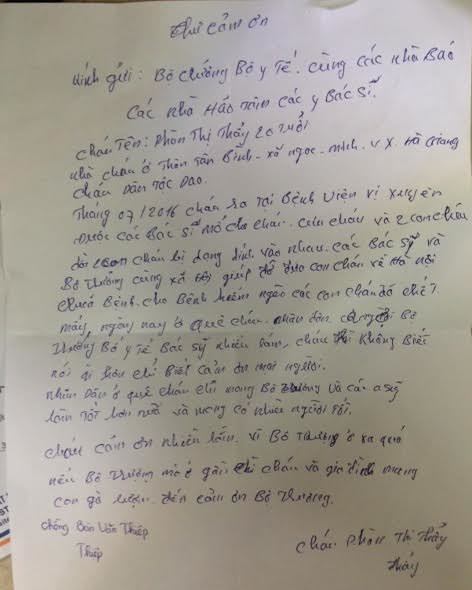 Thư cảm ơn
Kính gửi: Bộ trưởng Bộ y Tế. cùng các nhà Báo
Các nhà Hảo tâm các y Bác Sĩ.
Cháu Tên: Phàn Thị Thủy 20 Tuổi
nhà cháu ở Thôn Tân Bình - xã ngọc - minh. V X. Hà Giang
cháu Dân Tộc Dao.
Tháng 07/2016 cháu ra tại Bệnh viện vị xuyên
được các Bác Sĩ mổ cho cháu. cứu cháu và 2 con cháu
bị dạng dính vào nhau. các Bác sỹ và
Bộ trưởng cùng xã hội giúp đỡ đưa con cháu về Hà nội
chữa Bệnh. cho Bệnh hiểm ngèo các con cháu đỡ chết
mấy ngày nay ở quê cháu. nhân dân
trưởng Bộ y Tế Bác sỹ nhiều lắm, cháu không Biết
nói gì hơn chỉ biết cảm ơn mọi người.
nhân Dân ở quê cháu chỉ mong Bộ trưởng và các sỹ
làm Tốt hơn nữa và mong có nhiều người Tốt.
cháu cảm ơn nhiều lắm. vì Bộ Trưởng ở xa quá
nếu Bộ Trưởng mà ở gần thì cháu và gia đình mang
con gà đến cảm ơn Bộ Trưởng.
chồng Bàn Văn Thiệp
Thiệp
cháu Phàn Thị Thủy
Thủy